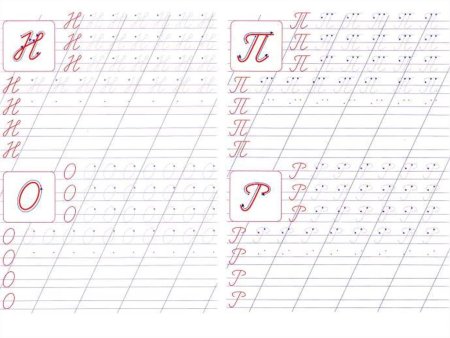 Н
Н
Н
Н
Н
Н
Н
Н
О
О
О
О
О
О
О
О
П
П
П
П
П
П
П
П
Р
Р
Р
Р
Р
Р
Р
Р